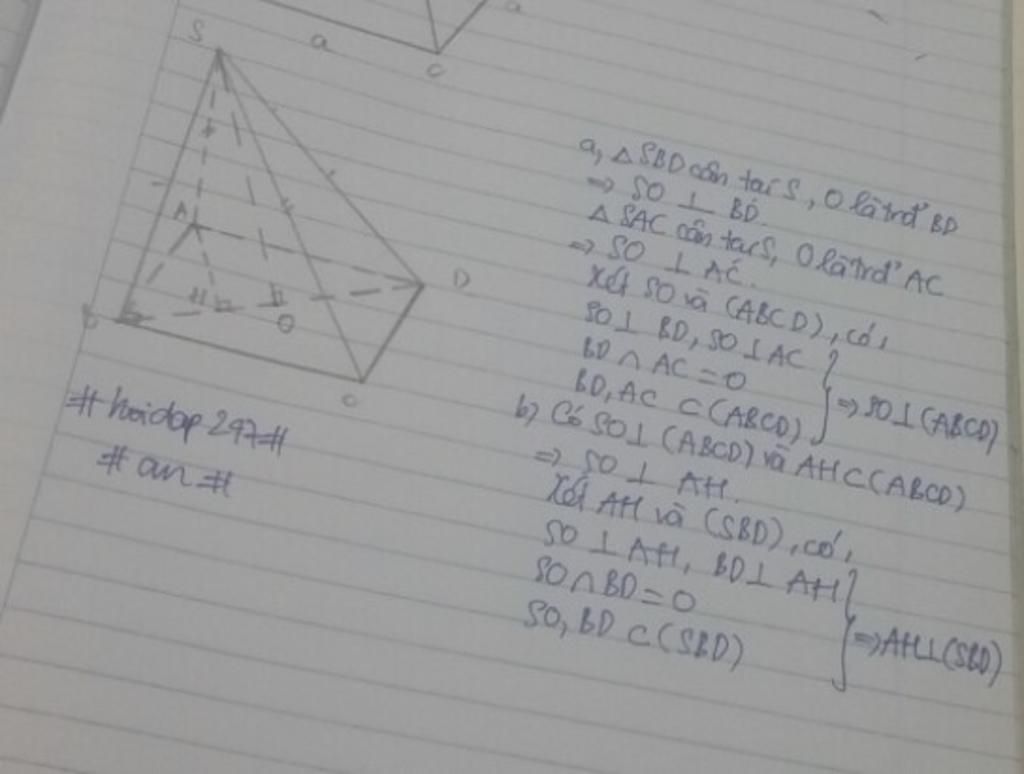 a
a
C
S
A
D
H
O
C
#hoidap247#
#an#
a, △SBD cân tại S, O là trđ BD
=> SO ⊥ BD.
△SAC cân tại S, O là trđ AC
=> SO ⊥ AC.
Xét SO và (ABCD), có,
SO ⊥ BD, SO ⊥ AC
BD ∩ AC = O
BD, AC ⊂ (ABCD) } => SO ⊥ (ABCD)
b) Có SO ⊥ (ABCD) và AH ⊂ (ABCD)
=> SO ⊥ AH.
Xét AH và (SBD), có,
SO ⊥ AH, BD ⊥ AH
SO ∩ BD = O
SO, BD ⊂ (SBD) } => AH ⊥ (SBD)